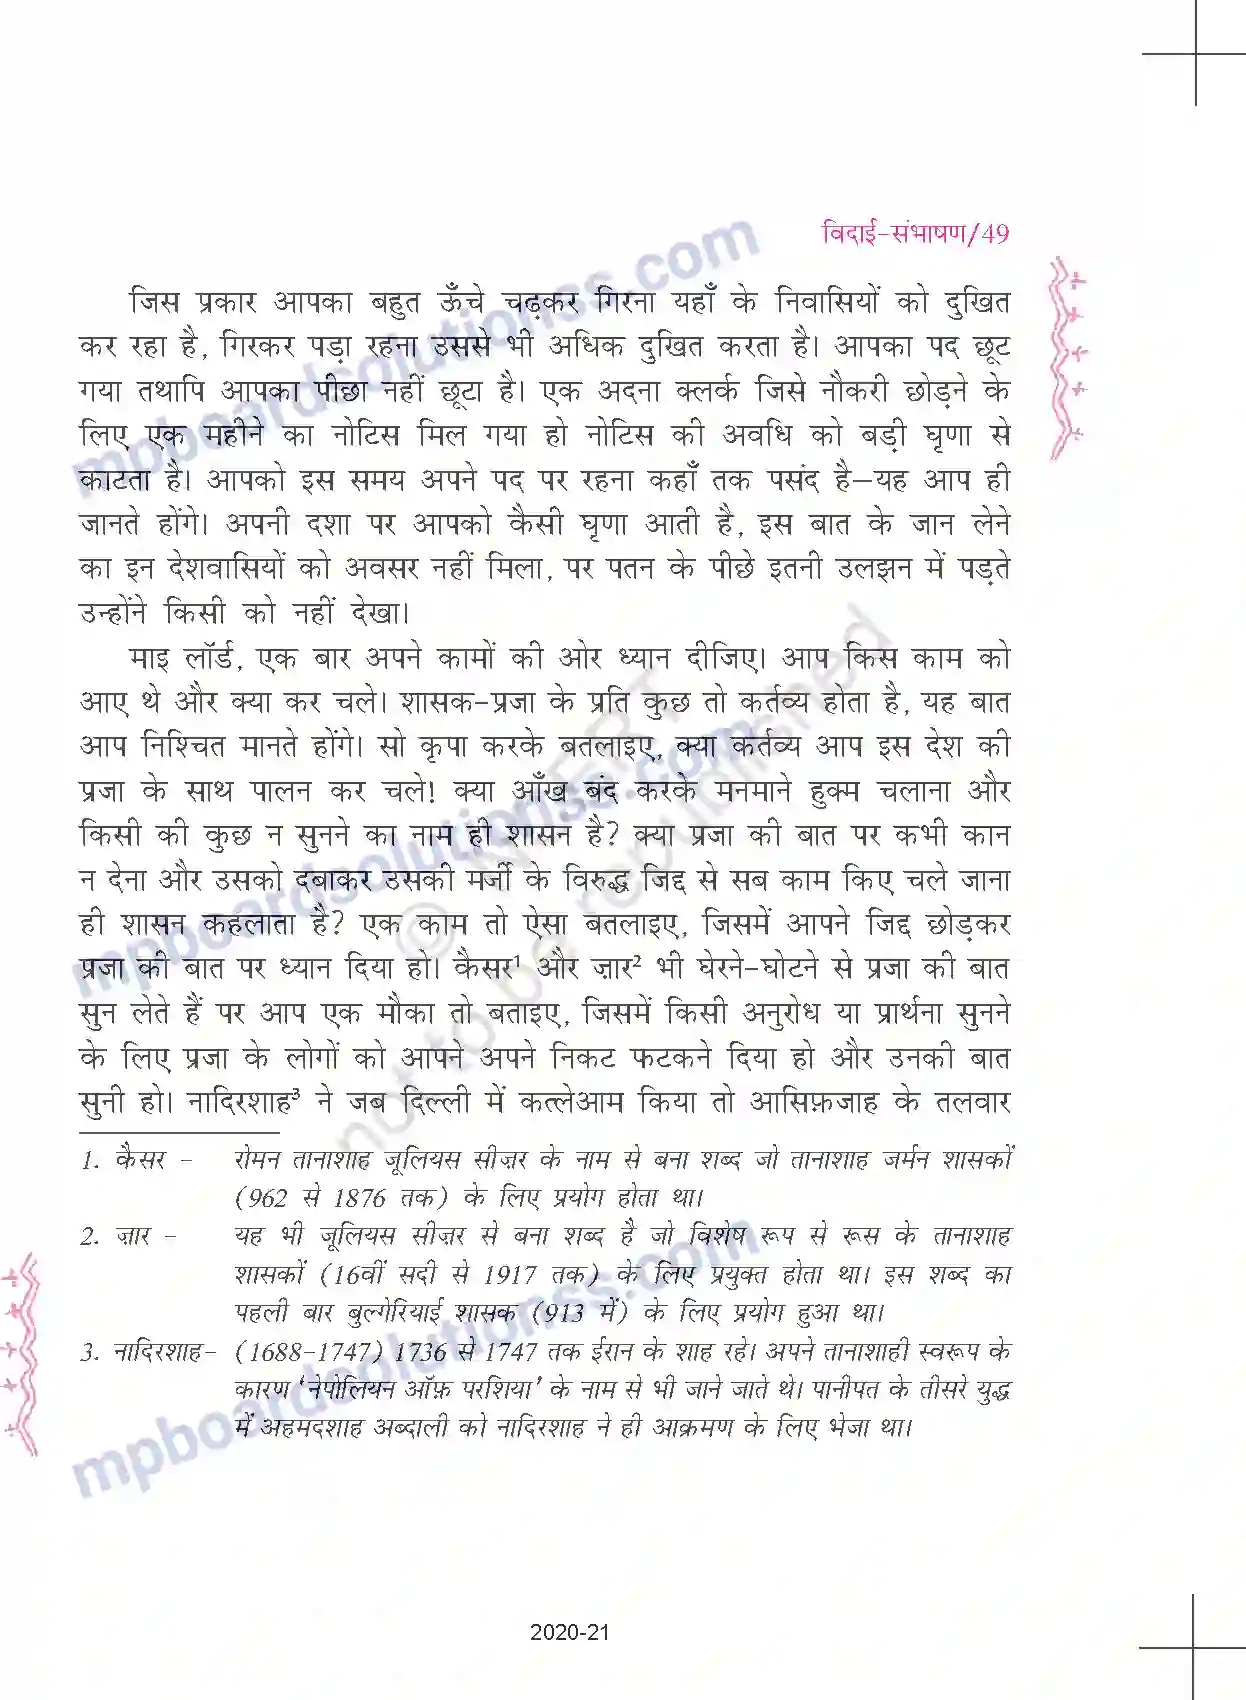 विदाई-संभाषण/49
जिस प्रकार आपका बहुत ऊँचे चढ़कर गिरना यहाँ के निवासियों को दुखित
कर रहा है, गिरकर पड़ा रहना उससे भी अधिक दुखित करता है। आपका पद छूट
गया तथापि आपका पीछा नहीं छूटा है। एक अदना क्लर्क जिसे नौकरी छोड़ने के
लिए एक महीने का नोटिस मिल गया हो नोटिस की अवधि को बड़ी घृणा से
काटता है। आपको इस समय अपने पद पर रहना कहाँ तक पसंद है—यह आप ही
जानते होंगे। अपनी दशा पर आपको कैसी घृणा आती है, इस बात के जान लेने
का इन देशवासियों को अवसर नहीं मिला, पर पतन के पीछे इतनी उलझन में पड़ते
उन्होंने किसी को नहीं देखा।
माइ लॉर्ड, एक बार अपने कामों की ओर ध्यान दीजिए। आप किस काम को
आए थे और क्या कर चले। शासक-प्रजा के प्रति कुछ तो कर्तव्य होता है, यह बात
आप निश्चित मानते होंगे। सो कृपा करके बतलाइए, क्या कर्तव्य आप इस देश की
प्रजा के साथ पालन कर चले! क्या आँख बंद करके मनमाने हुक्म चलाना और
किसी की कुछ न सुनने का नाम ही शासन है? क्या प्रजा की बात पर कभी कान
न देना और उसको दबाकर उसकी मर्जी के विरुद्ध जिद्द से सब काम किए चले जाना
ही शासन कहलाता है? एक काम तो ऐसा बतलाइए, जिसमें आपने जिद्द छोड़कर
प्रजा की बात पर ध्यान दिया हो। कैसर¹ और ज़ार² भी घेरने-घोटने से प्रजा की बात
सुन लेते हैं पर आप एक मौका तो बताइए, जिसमें किसी अनुरोध या प्रार्थना सुनने
के लिए प्रजा के लोगों को आपने अपने निकट फटकने दिया हो और उनकी बात
सुनी हो। नादिरशाह³ ने जब दिल्ली में कत्लेआम किया तो आसिफ़जाह के तलवार
1. कैसर – रोमन तानाशाह जूलियस सीज़र के नाम से बना शब्द जो तानाशाह जर्मन शासकों
(962 से 1876 तक) के लिए प्रयोग होता था।
2. ज़ार – यह भी जूलियस सीज़र से बना शब्द है जो विशेष रूप से रूस के तानाशाह
शासकों (16वीं सदी से 1917 तक) के लिए प्रयुक्त होता था। इस शब्द का
पहली बार बुल्गेरियाई शासक (913 में) के लिए प्रयोग हुआ था।
3. नादिरशाह– (1688-1747) 1736 से 1747 तक ईरान के शाह रहे। अपने तानाशाही स्वरूप के
कारण ‘नेपोलियन ऑफ़ परशिया’ के नाम से भी जाने जाते थे। पानीपत के तीसरे युद्ध
में अहमदशाह अब्दाली को नादिरशाह ने ही आक्रमण के लिए भेजा था।
2020-21
mpboardsolutionss.com
mpboardsolutionss.com
mpboardsolutionss.com
© NCERT
not to be republished